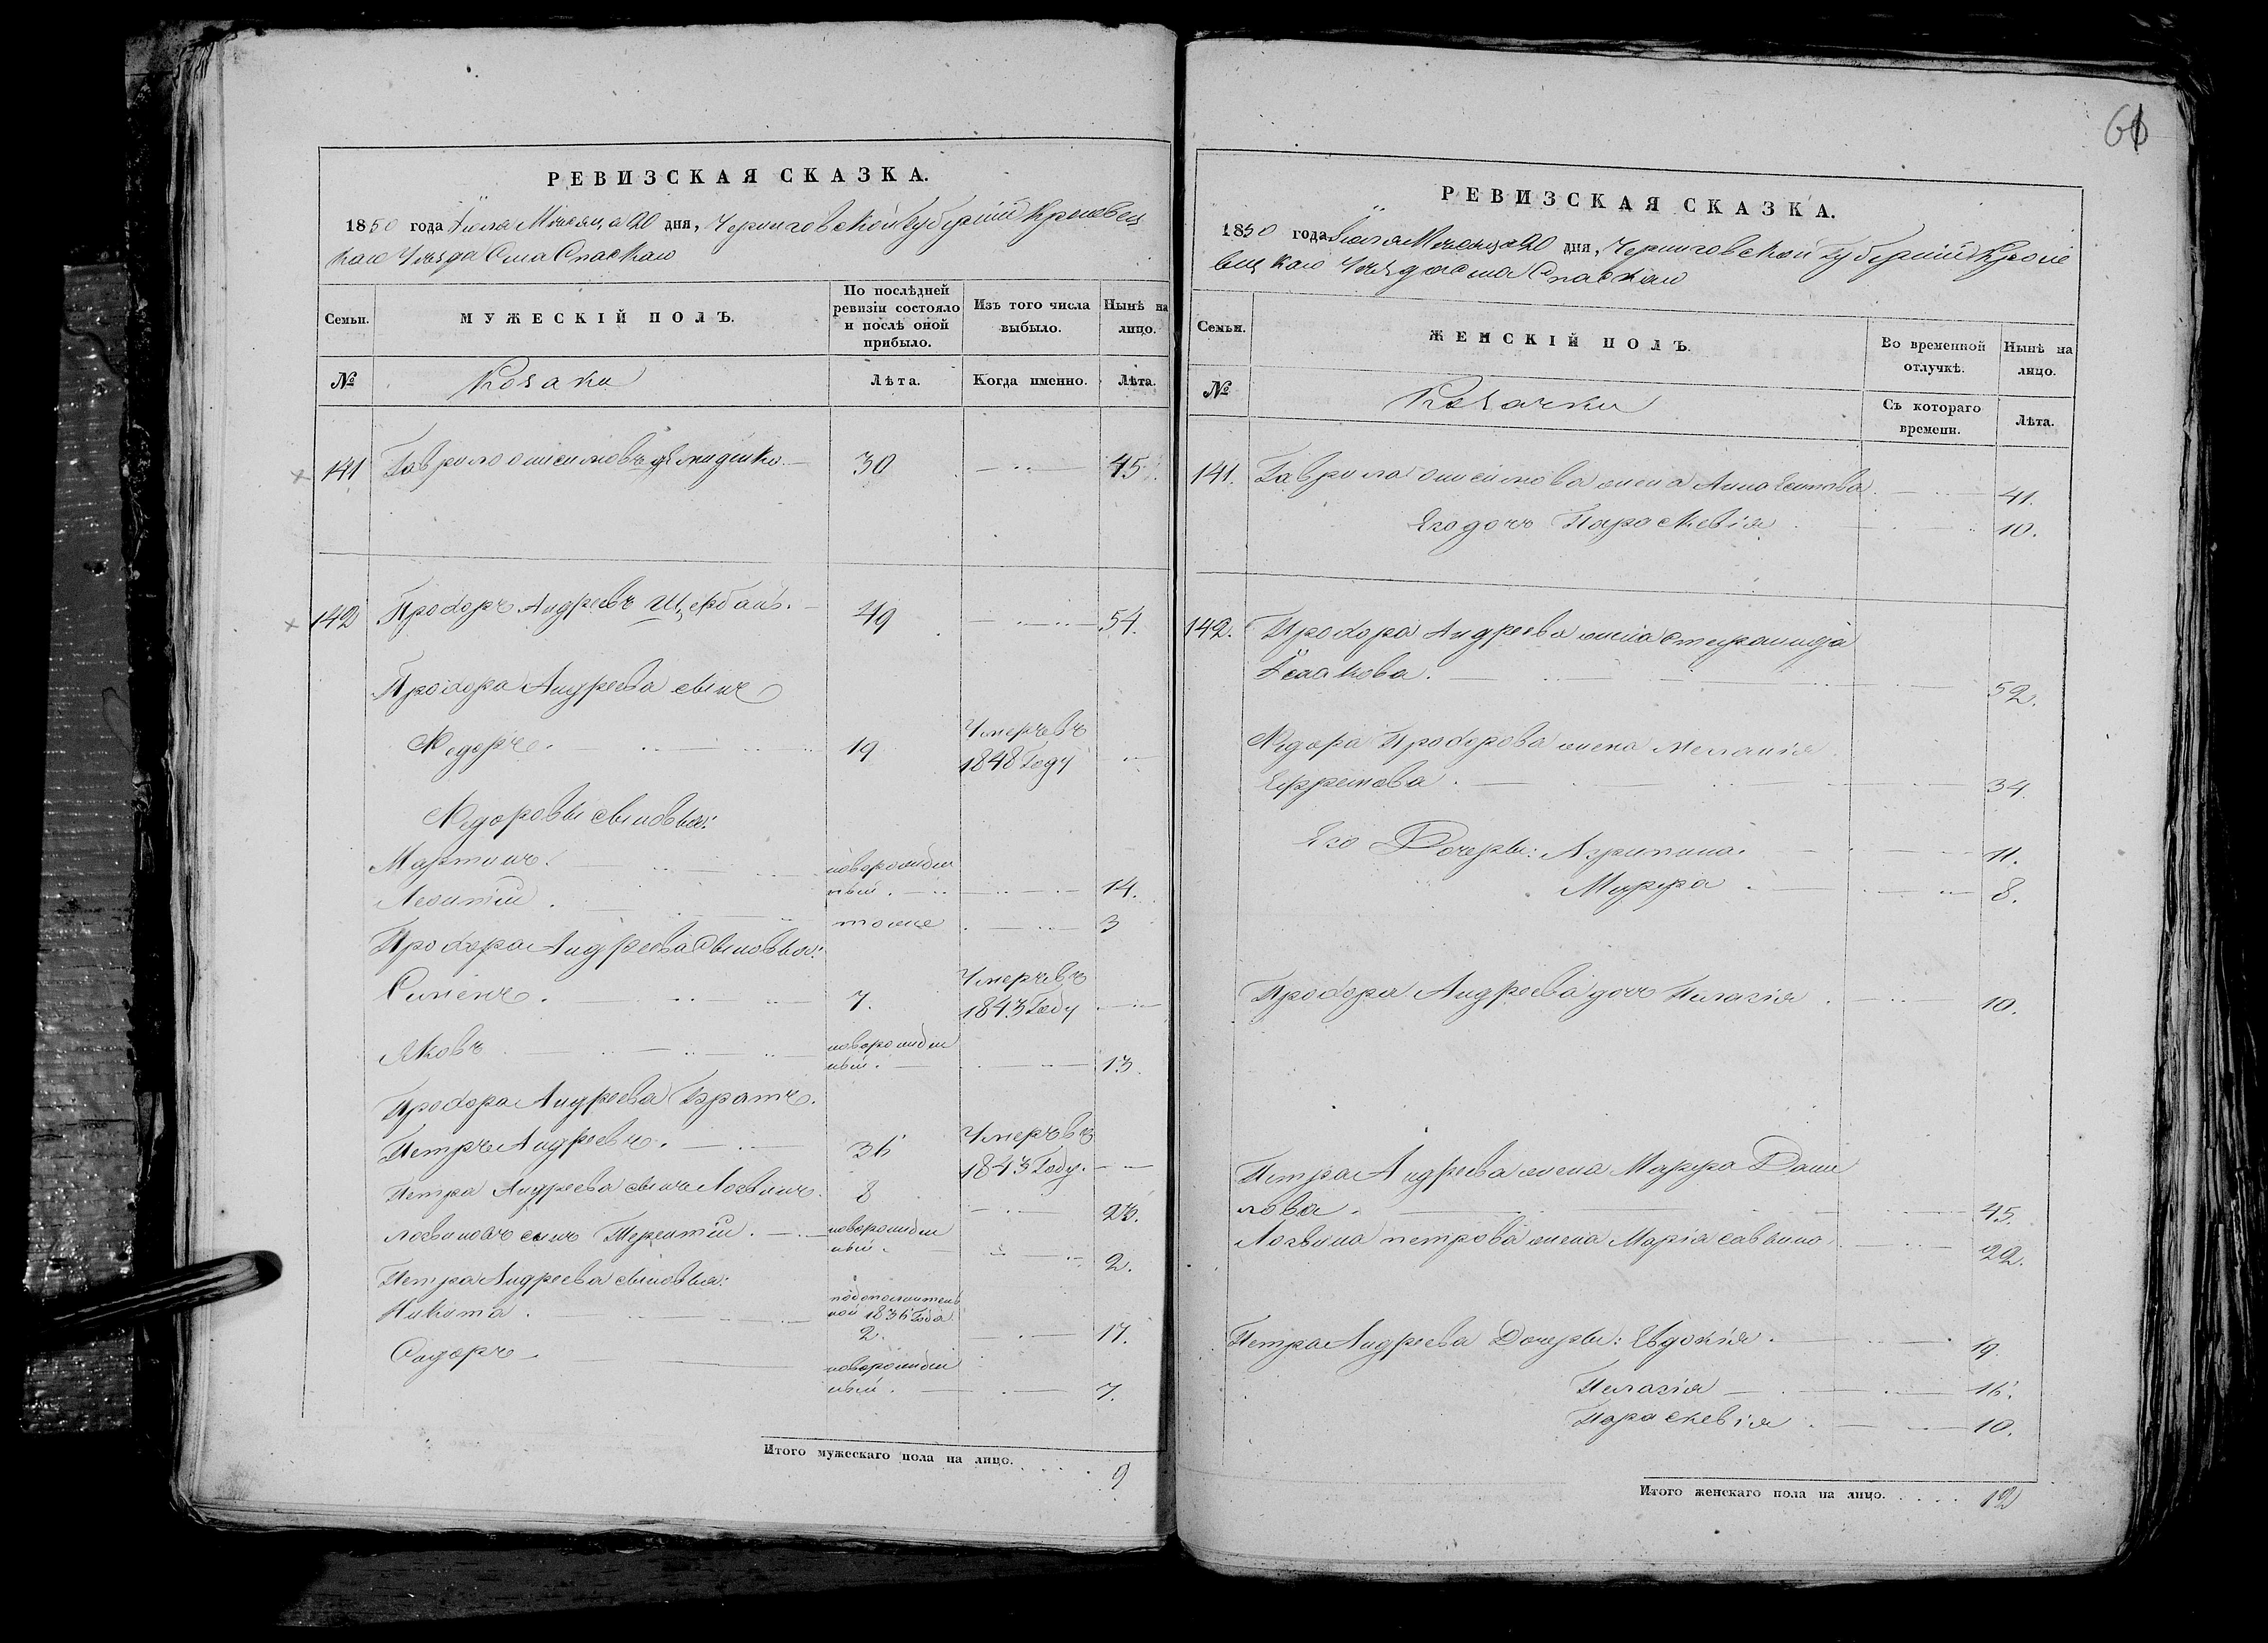 РЕВИЗСКАЯ СКАЗКА.
1850 года Іюля Мѣсяца 20 дня, Черниговской Губерніи Кролевец
каго Уѣзда Села Спаскаго
Семьи.
МУЖЕСКІЙ ПОЛЪ.
По послѣдней ревизіи состояло и послѣ оной прибыло.
Изъ того числа выбыло.
Нынѣ на лицо.
№
Козаки
Лѣта.
Когда именно.
Лѣта.
141 Гаврило Онисимовъ Демиденко 30 45.
142 Прохоръ Андреевъ Щербакъ. 49 54.
Прохора Андреева сынъ
Федоръ. 19 Умеръ въ 1848 Году
Федоровы сыновья:
Мартинъ. новорожден ный. 14.
Леонтій. тоже 3
Прохора Андреева Сыновья:
Сименъ. 7. Умеръ въ 1843 Году
Яковъ новорожден ный. 13.
Прохора Андреева Братъ.
Петръ Андреевъ. 36 Умеръ въ 1843 Году.
Петра Андреева сынъ Логвинъ. 8 23.
Логвиновъ сынъ Терентій. новорожден ный. 2.
Петра Андреева сыновья:
Никита. подополнитель ной 1836 Года 2. 17.
Сидоръ новорожден ный. 7.
Итого мужескаго пола на лицо. 9
61
РЕВИЗСКАЯ СКАЗКА.
1850 года Іюля Мѣсяца 20 дня, Черниговской Губерніи Кроле
вецкаго Уѣзда села Спаскаго
Семьи.
ЖЕНСКІЙ ПОЛЪ.
Во временной отлучкѣ.
Нынѣ на лицо.
№
Козачки
Съ котораго времени.
Лѣта.
141. Гаврила Онисимова жена Анна Есипова 41.
Его дочь Параскевія 10.
142. Прохора Андреева жена Степанида
Ісакова. 52.
Федора Прохорова жена Меланія
Ефремова. 34.
Его Дочеры: Агрипина. 11.
Марфа. 8.
Прохора Андреева дочь Пелагія. 10.
Петра Андреева жена Марфа Дани
лова. 45.
Логвина петрова жена Марія саввина 22.
Петра Андреева Дочеры: Евдокія. 19.
Пелагія 16.
Параскевія. 10.
Итого женскаго пола на лицо. 12